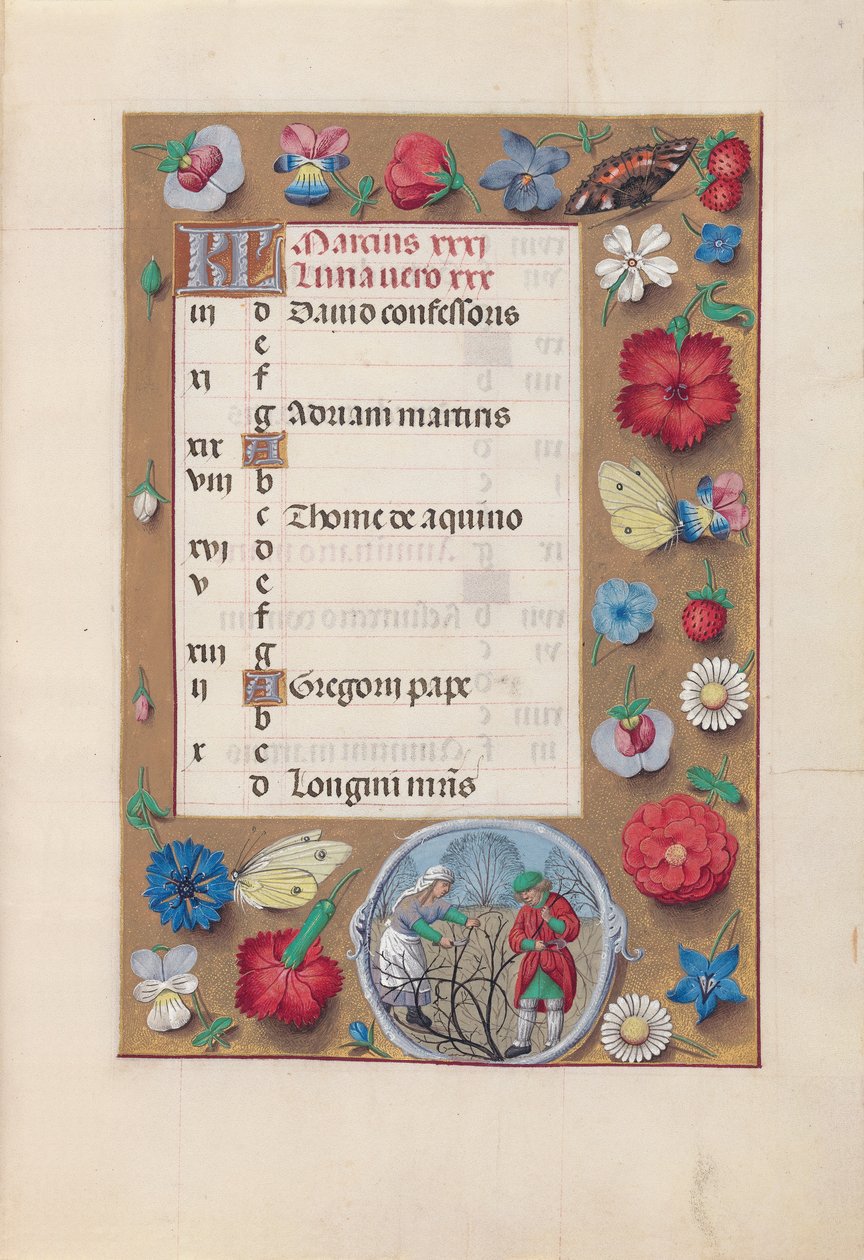 KL Marcius xxxj
Luna uero xxx
iij d Dauid confessoris
e
xj f
g Adriani martiris
xix A
viij b
c Thome de aquino
xvj d
v e
f
xiij g
ij A Gregorij pape
b
x c
d Longini mr̃is